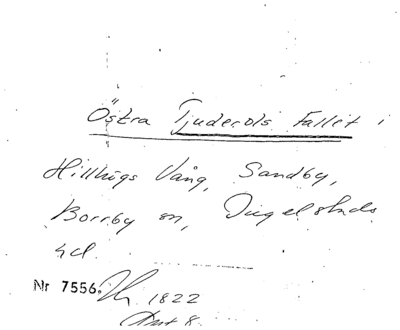 Östra Tjuderöls Fallet i
Hillhögs Vång, Sandby,
Borrby sn, Ingelstads
hd.
Nr 7556. 1822